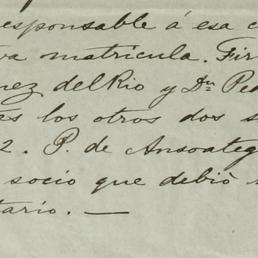 responsable á esa c
va matricula. Fir
nez del Rio y Dn Pe
es los otros dos s
2. P. de Ansoateg
socio que debió
tario. —